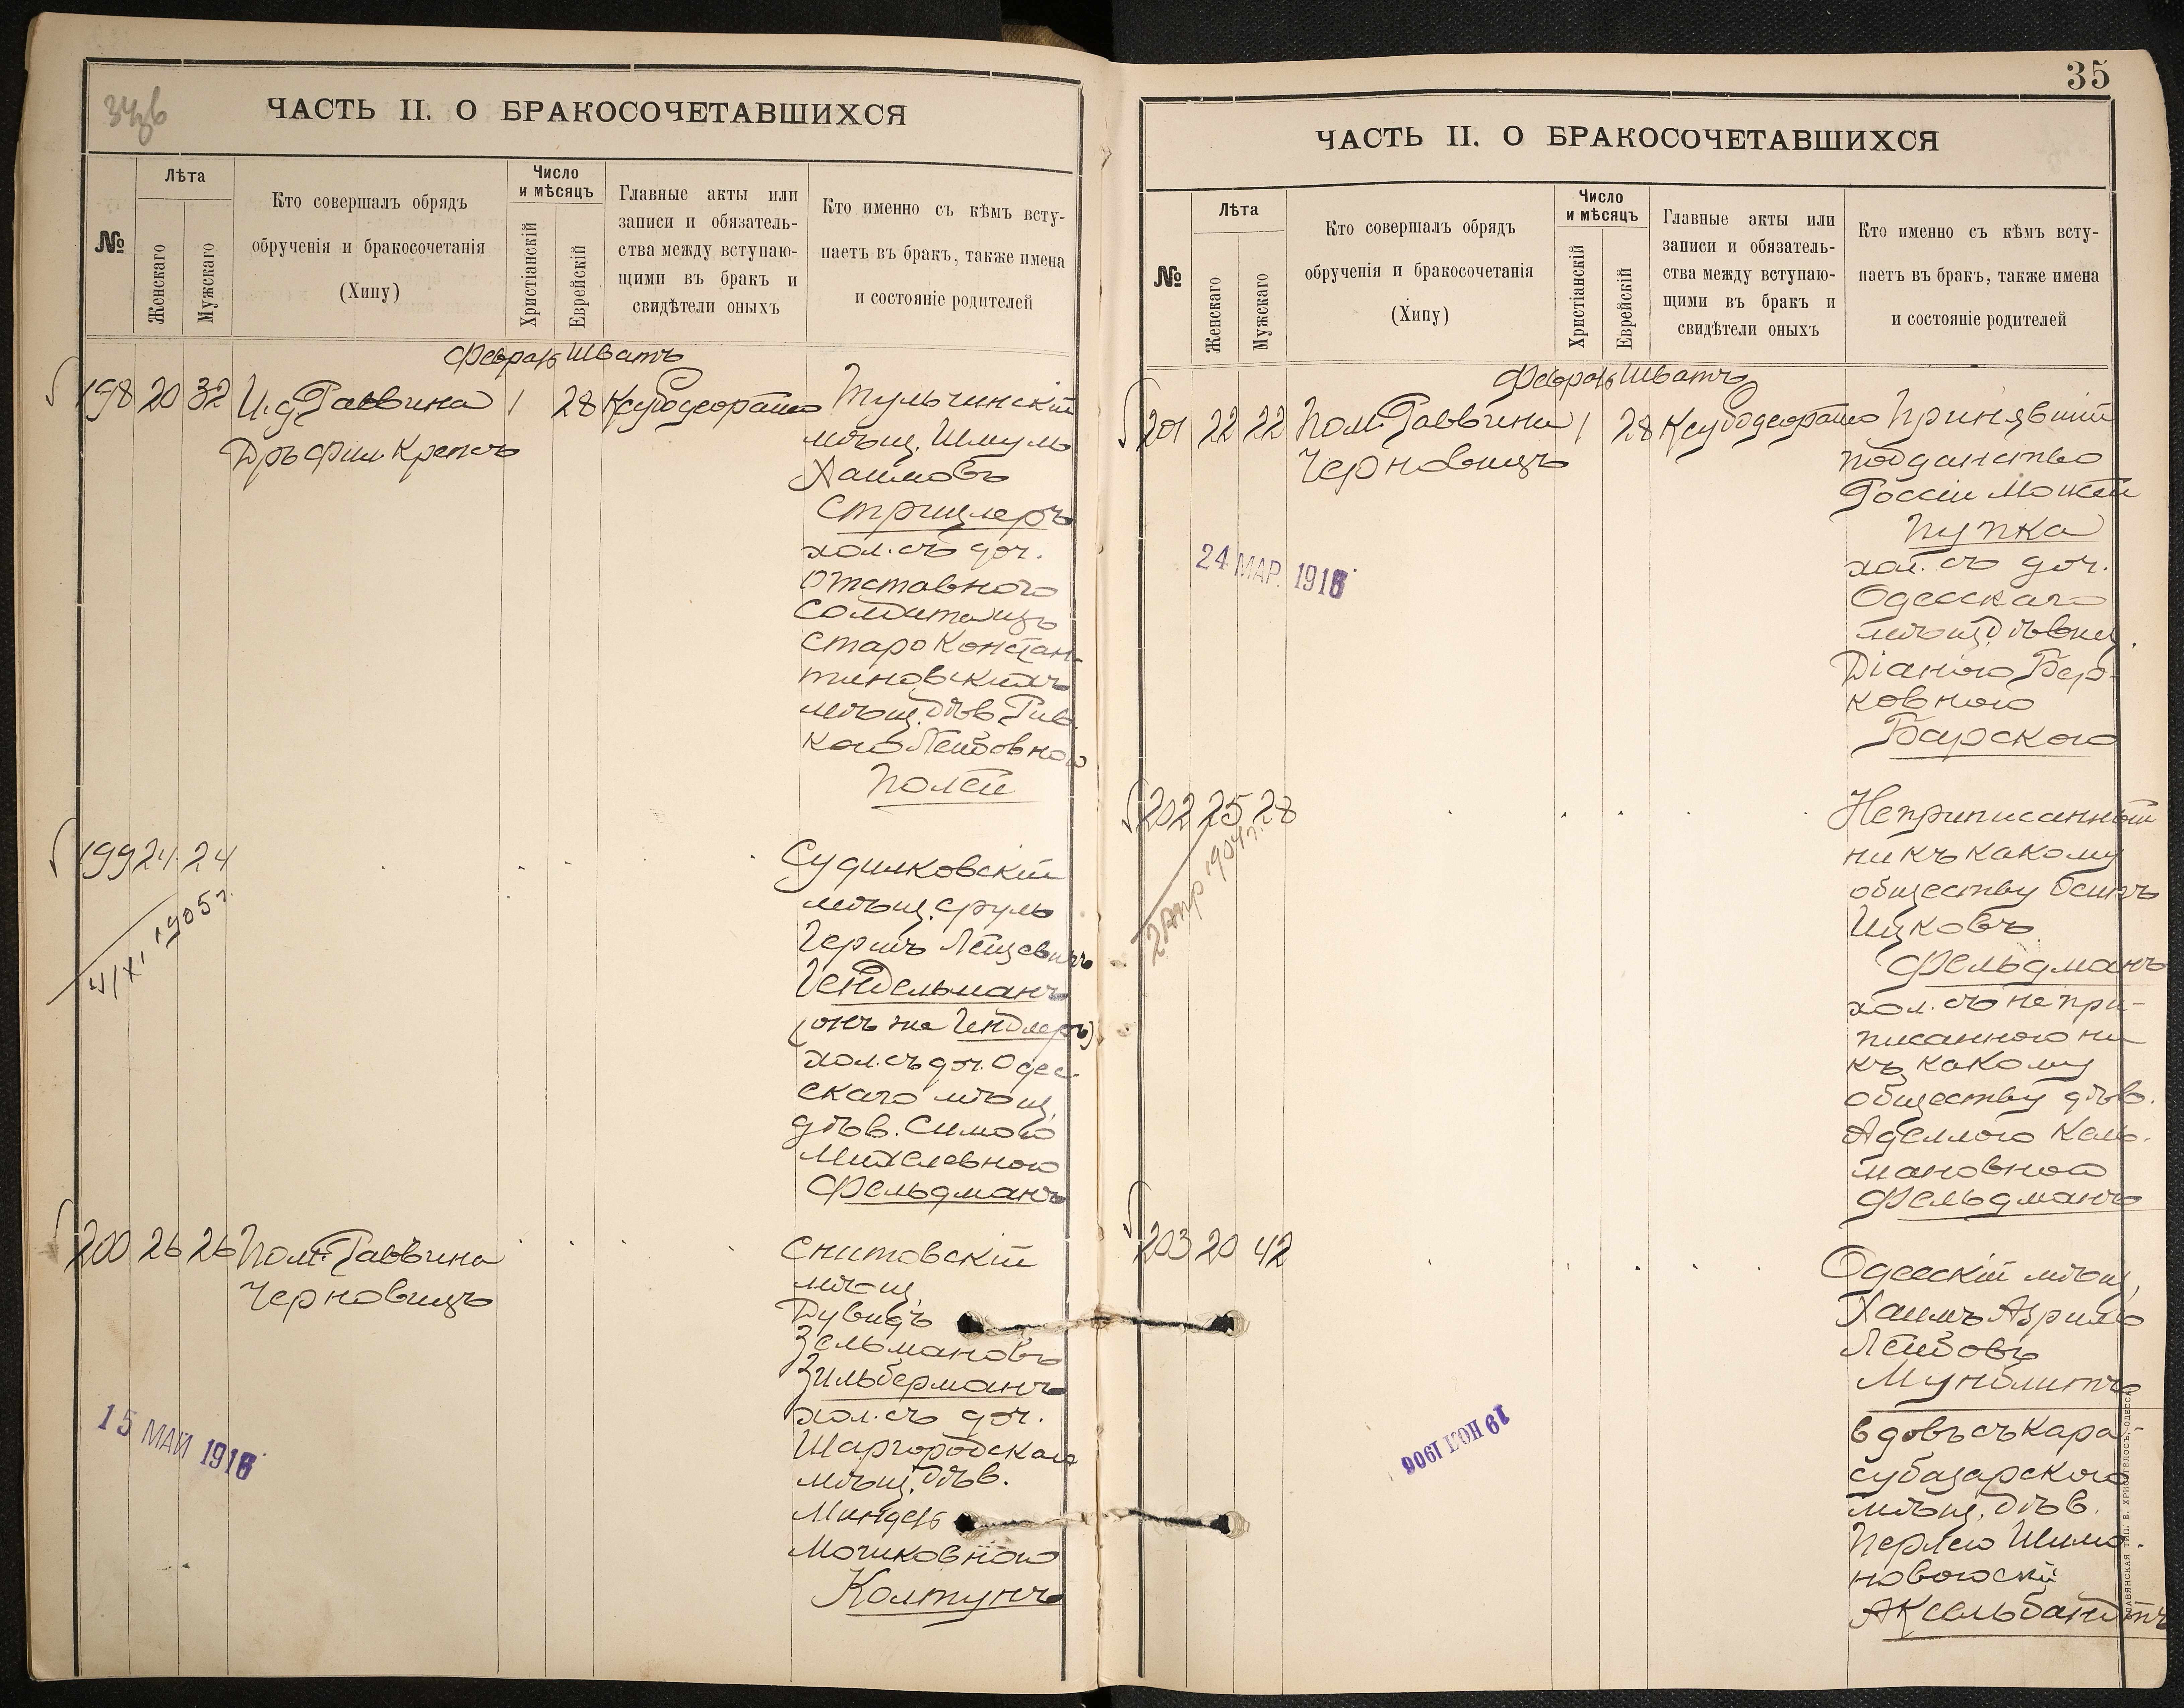 ЧАСТЬ II. О БРАКОСОЧЕТАВШИХСЯ
№
Лѣта
Женскаго
Мужскаго
Кто совершалъ обрядъ
обрученія и бракосочетанія
(Хипу)
Число
и мѣсяцъ
Христіанскій
Еврейскій
Главные акты или
записи и обязатель-
ства между вступаю-
щими въ бракъ и
свидѣтели оныхъ
Кто именно съ кѣмъ всту-
паетъ въ бракъ, также имена
и состояніе родителей
Шватъ
198 20 32 И.д. Раввина 1 28
Дръ Фил. Крепсъ
Тульчинскій
мѣщ. Шмуль
Хаимовъ
Стрицлеръ
хол. съ доч.
отставного
солдата изъ
Старо Констан-
тиновскихъ
мѣщ. дѣв. Рив-
кою Лейбовною
Полей
199 24 24
4/XI 1905 г.
Судилковскій
мѣщ. Сруль
Гершъ Лейзевичъ
Гендельманъ
(онъ же Гендлеръ)
хол. съ доч. Одес-
скаго мѣщ.
дѣв. Симою
Михелевною
Фельдманъ
200 26 26 Пом. Раввина
Черновицъ
Снитовскій
мѣщ.
Дувидъ
Зельмановъ
Зильберманъ
хол. съ доч.
Шаргородскаго
мѣщ. дѣв.
Миндель
Мошковною
Колтунъ
15 МАЙ 1916
35
ЧАСТЬ II. О БРАКОСОЧЕТАВШИХСЯ
№
Лѣта
Женскаго
Мужскаго
Кто совершалъ обрядъ
обрученія и бракосочетанія
(Хипу)
Число
и мѣсяцъ
Христіанскій
Еврейскій
Главные акты или
записи и обязатель-
ства между вступаю-
щими въ бракъ и
свидѣтели оныхъ
Кто именно съ кѣмъ всту-
паетъ въ бракъ, также имена
и состояніе родителей
Шватъ
201 22 22 Пом. Раввина 1 28
Черновицъ
Принявшій
подданство
Россіи Мошко
Пупко
хол. съ доч.
Одесскаго
мѣщ. дѣвиц.
Діаною Бер-
ковною
Барскою
24 МАР. 1916
202 25 28
2 Апр 1904 г.
Неприписанный
ни къ какому
обществу Осипъ
Ицковъ
Фельдманъ
хол. съ непри-
писанною ни
къ какому
обществу дѣв.
Аделлою Каль-
мановною
Фельдманъ
203 20 42
Одесскій мѣщ.
Хаимъ Азриль
Лейбовъ
Мунблитъ
вдовъ съ Кара-
субазарскою
мѣщ. дѣв.
Перлею Шимо-
новою
Аксельбандтъ
19 НОЯ 1906
СЛАВЯНСКАЯ ТИП. Е. ХРИСОГЕЛОСЪ, ОДЕССА